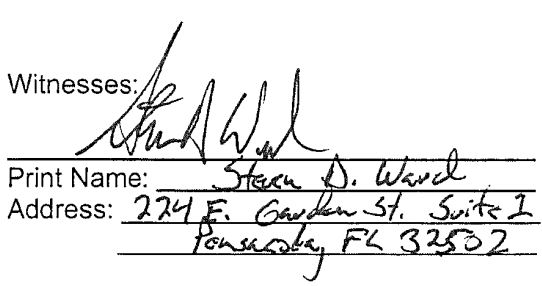 Witnesses: Steven D Ward
Print Name: Steven D. Ward
Address: 224 E. Garden St. Suite 1
Pensacola, FL 32502